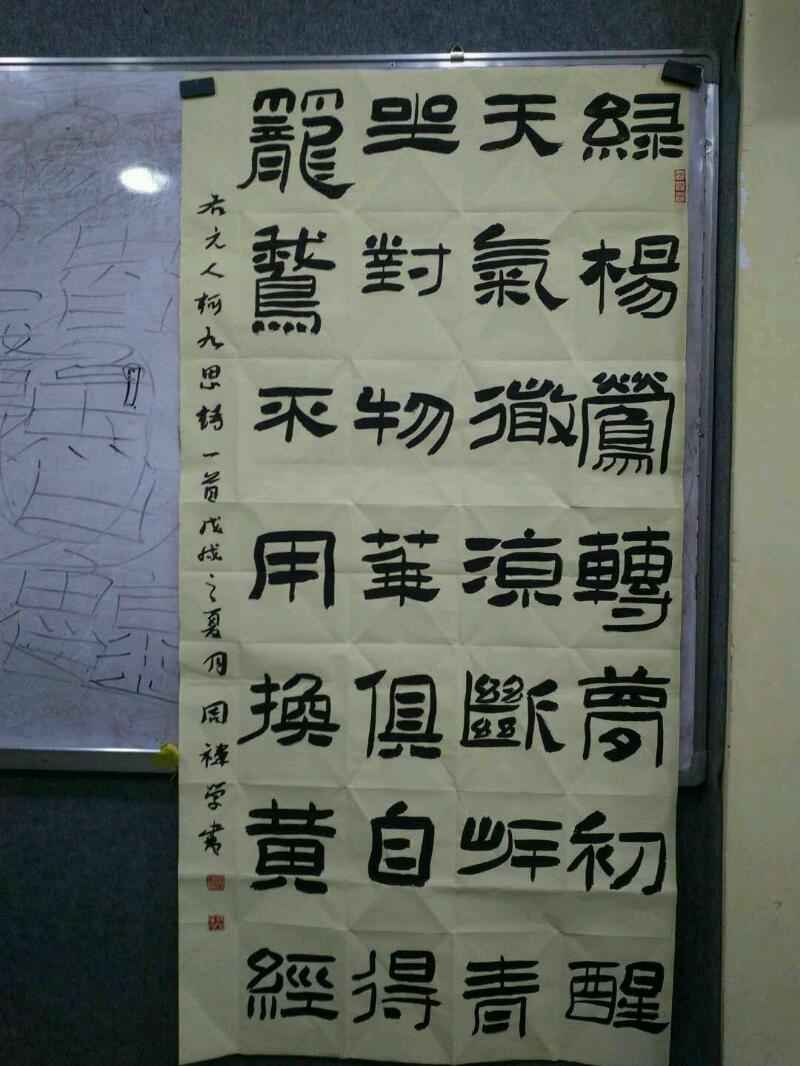 緑楊鶯轉夢初醒
天氣微涼斷岸青
坐對物華俱自得
籠鵞不用換黃經
右元人柯九思詩一首戊戌之夏月周禕学書